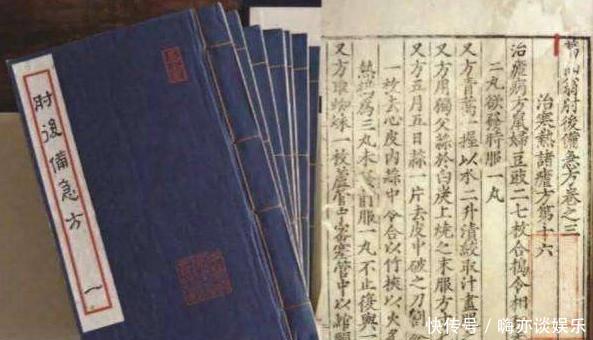 肘後備急方
一
葛仙翁肘後備急方卷之三
治寒熱諸瘧方第十六
治瘧病方鼠婦豆豉二七枚合搗令相
二丸欲發時服一丸
又方青蒿一握以水二升漬絞取汁盡
又方用獨父蒜於白炭上燒之末服方
又方五月五日蒜一片去皮中破之刀割
一枚去心皮內蒜中令合以竹挾以火
熱搗為三丸未發前服一丸不止復與一
又方取蜘蛛一枚蘆管中密塞管中以綰
快传号 / 嗨亦谈娱乐